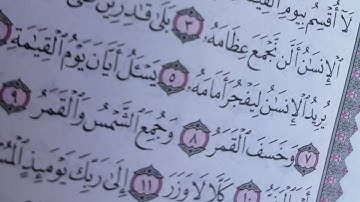 لَا أُقْسِمُ بِيَوْمِ
ٱلْإِنسَٰنُ أَلَّن نَّجْمَعَ عِظَامَهُۥ ٣ بَلَىٰ قَٰدِرِينَ
يُرِيدُ ٱلْإِنسَٰنُ لِيَفْجُرَ أَمَامَهُۥ ٥ يَسْـَٔلُ أَيَّانَ يَوْمُ ٱلْقِيَٰمَةِ
٧ وَخَسَفَ ٱلْقَمَرُ ٨ وَجُمِعَ ٱلشَّمْسُ وَٱلْقَمَرُ ٩
١٠ كَلَّا لَا وَزَرَ ١١ إِلَىٰ رَبِّكَ يَوْمَئِذٍ